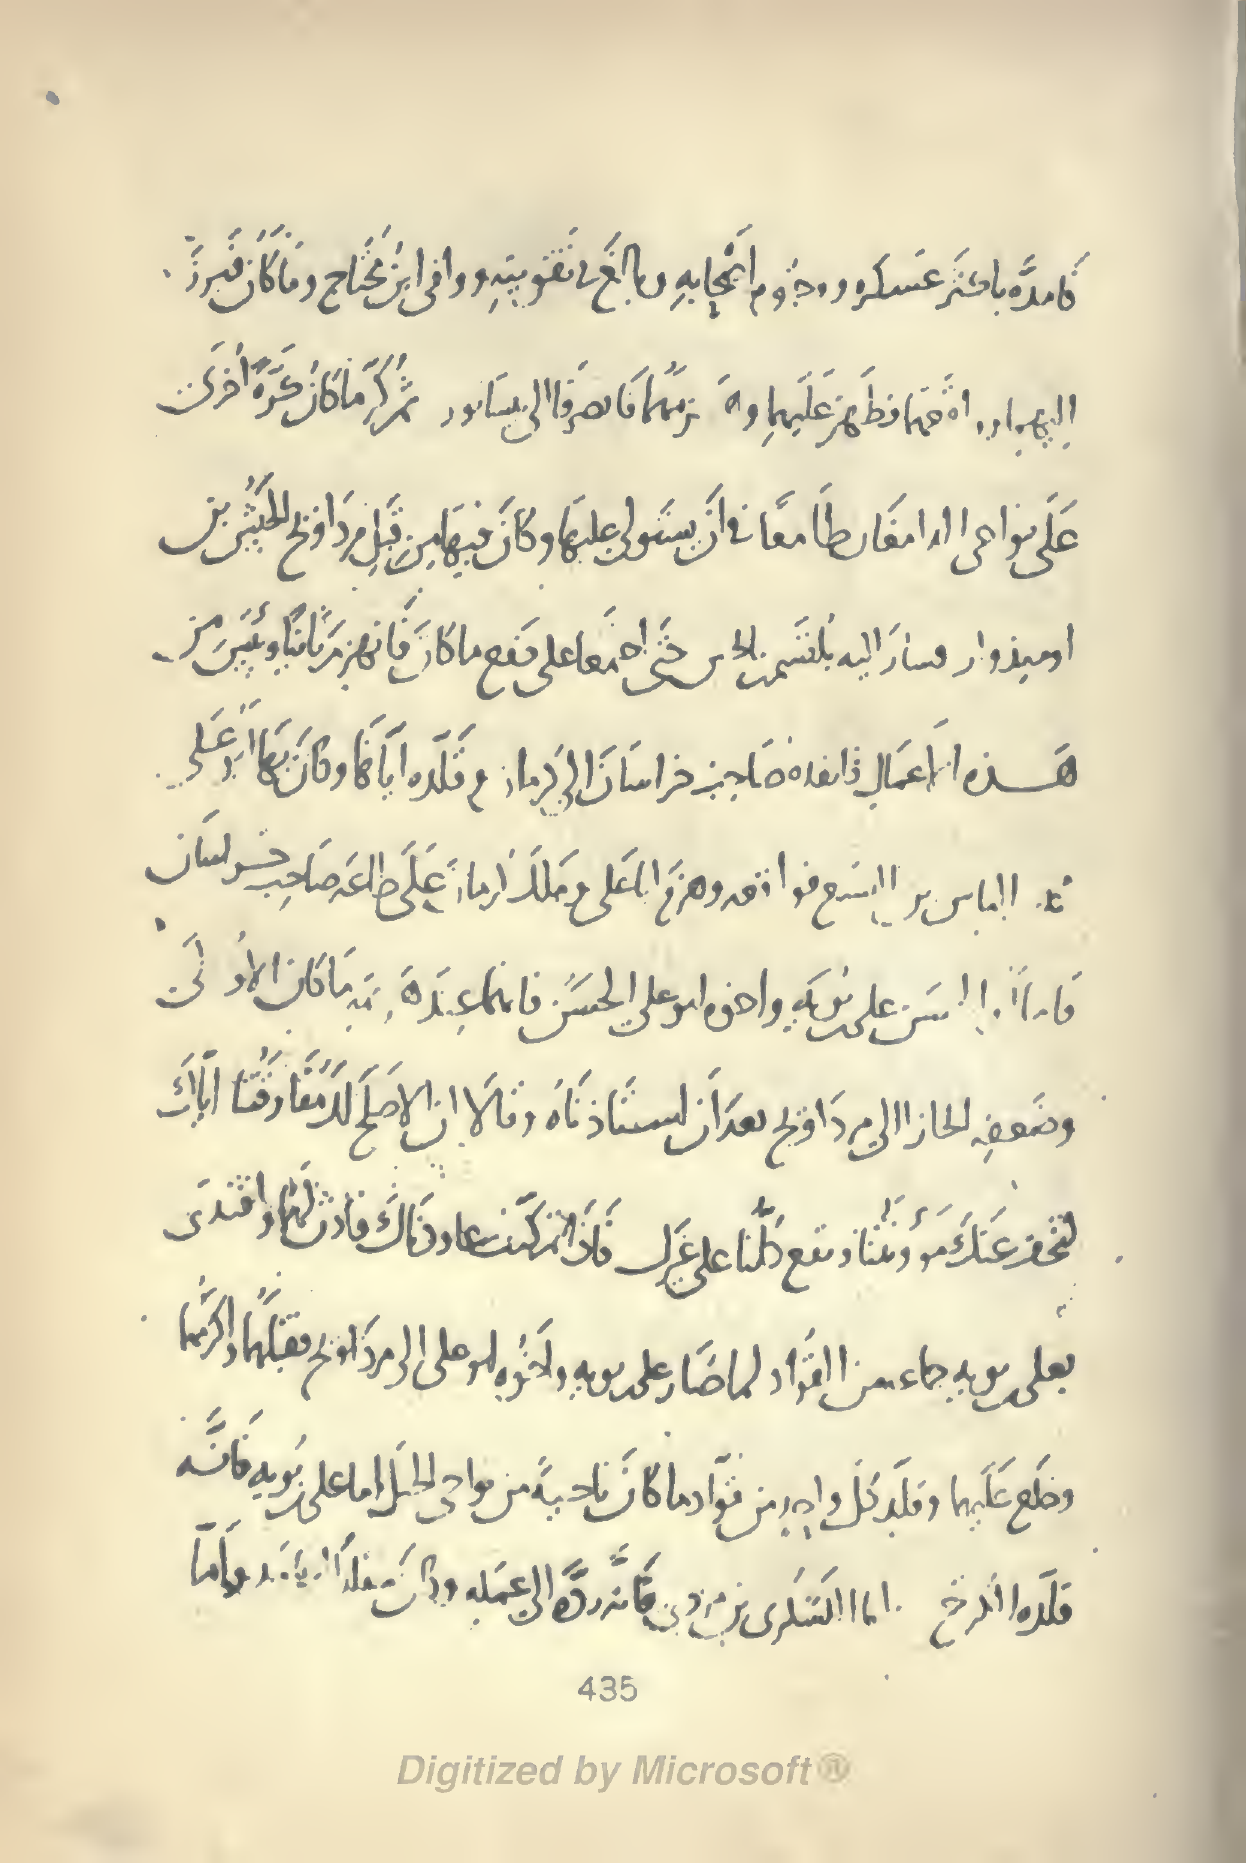 فامدّه باكثر عسكره ووجوه اصحابه وبالغ في تقويته ووافى ابن محتاج وماكان فبرز
اليهما وواقعهما فظهر عليهما وهزمهما فانصرفا الى نيسابور ثم كرّ ماكان كرّة اخرى
على نواحي الدامغان طامعا في ان يستولي عليها وكان فيها من قبل مرداويج
اوميذوار وسار اليه بلقسم بن الحسن حتى اجتمعا على دفع ماكان فانهزم ثانيا ويئس من
هذه الاعمال فانفذه صاحب خراسان الى كرمان وقلّده ايّاها وكان بها ابو على
بن الياس بن اليسع فواقعه وهزم ابا على وملك كرمان على طاعة صاحب خراسان
فاما ابو الحسن على بن بويه واخوه ابو على الحسن فانهما عند هزيمة ماكان الاولى
وضعفه انحازا الى مرداويج بعد ان استاذناه وقالا ان الاصلح لك مفارقتنا اياك
لتخف عنك مؤونتنا ويقع كلنا على غيرك فاذا تمكنت عاودناك فاذن لهما واقتدى
بعلى بن بويه جماعة من القوّاد لما صار على بن بويه واخوه ابو على الى مرداويج فقبلهما واكرمهما
وخلع عليهما وقلّد كل واحد من قوّاد ماكان ناحية من نواحي الجبل اما على بن بويه فانّه
قلّده الكرج اما الشكرى بن مردى فانه ردّه الى عمله وكان واما
435
Digitized by Microsoft®